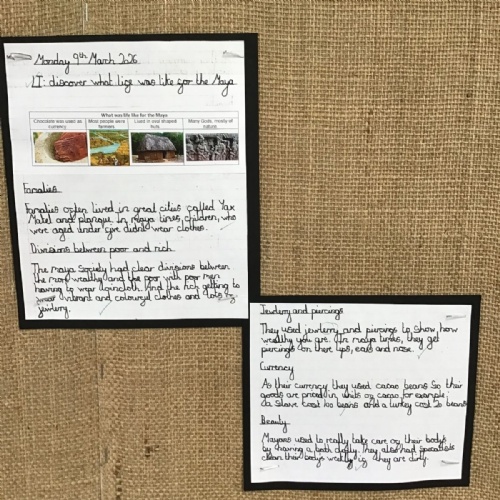 Monday 9th March 2026
LI: discover what life was like for the Maya
What was life like for the Maya
Chocolate was used as currency
Most people were farmers
Lived in oval shaped huts
Many Gods, mostly of nature
Families
Families often lived in great cities called Yax
Mutel and planque. In maya times, children, who
were aged under five didn't wear clothes.
Divisions between poor and rich.
The maya Society had clear divisions between
the more wealthy and the poor with poor men
having to wear loincloth. And the rich getting to
wear vibrant and colourful clothes and lots of
jewlerry.
Jewlerry and piercings
They used jewlerry and piercings to show how
wealthy you are. In maya times, they get
piercings on there lips, ears and nose.
Currency
As their currency they used cacao beans. So their
goods are priced in units of cacao for example,
a slave cost 100 beans and a turkey cost 20 beans
Beauty
Mayans used to really take care of their bodys
by having a bath daily. They also had specialists
clean their bodys weekly if they are dirty.